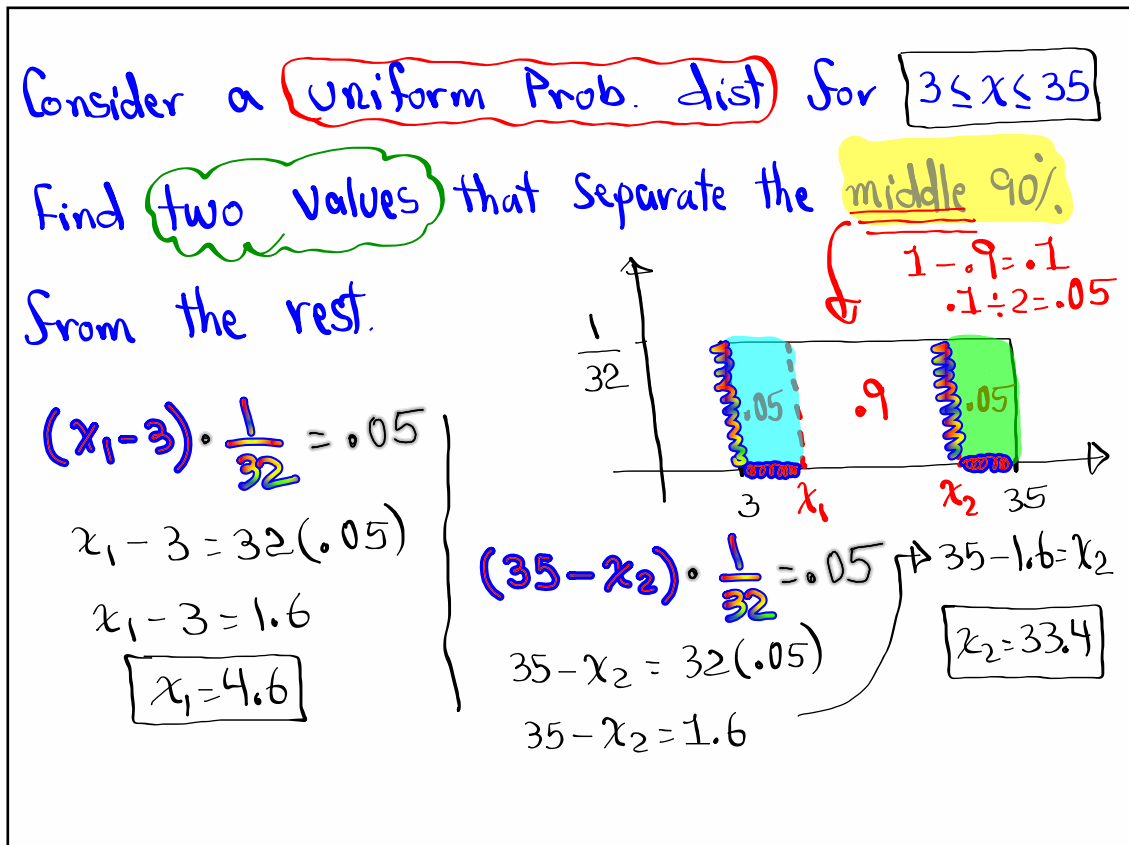 Consider a Uniform Prob. dist for 3 ≤ x ≤ 35
Find two values that separate the middle 90%
from the rest.
1 - .9 = .1
.1 ÷ 2 = .05
1/32
.05 .9 .05
3 x₁ x₂ 35
(x₁ - 3) · 1/32 = .05
x₁ - 3 = 32(.05)
x₁ - 3 = 1.6
x₁ = 4.6
(35 - x₂) · 1/32 = .05
35 - x₂ = 32(.05)
35 - x₂ = 1.6
35 - 1.6 = x₂
x₂ = 33.4